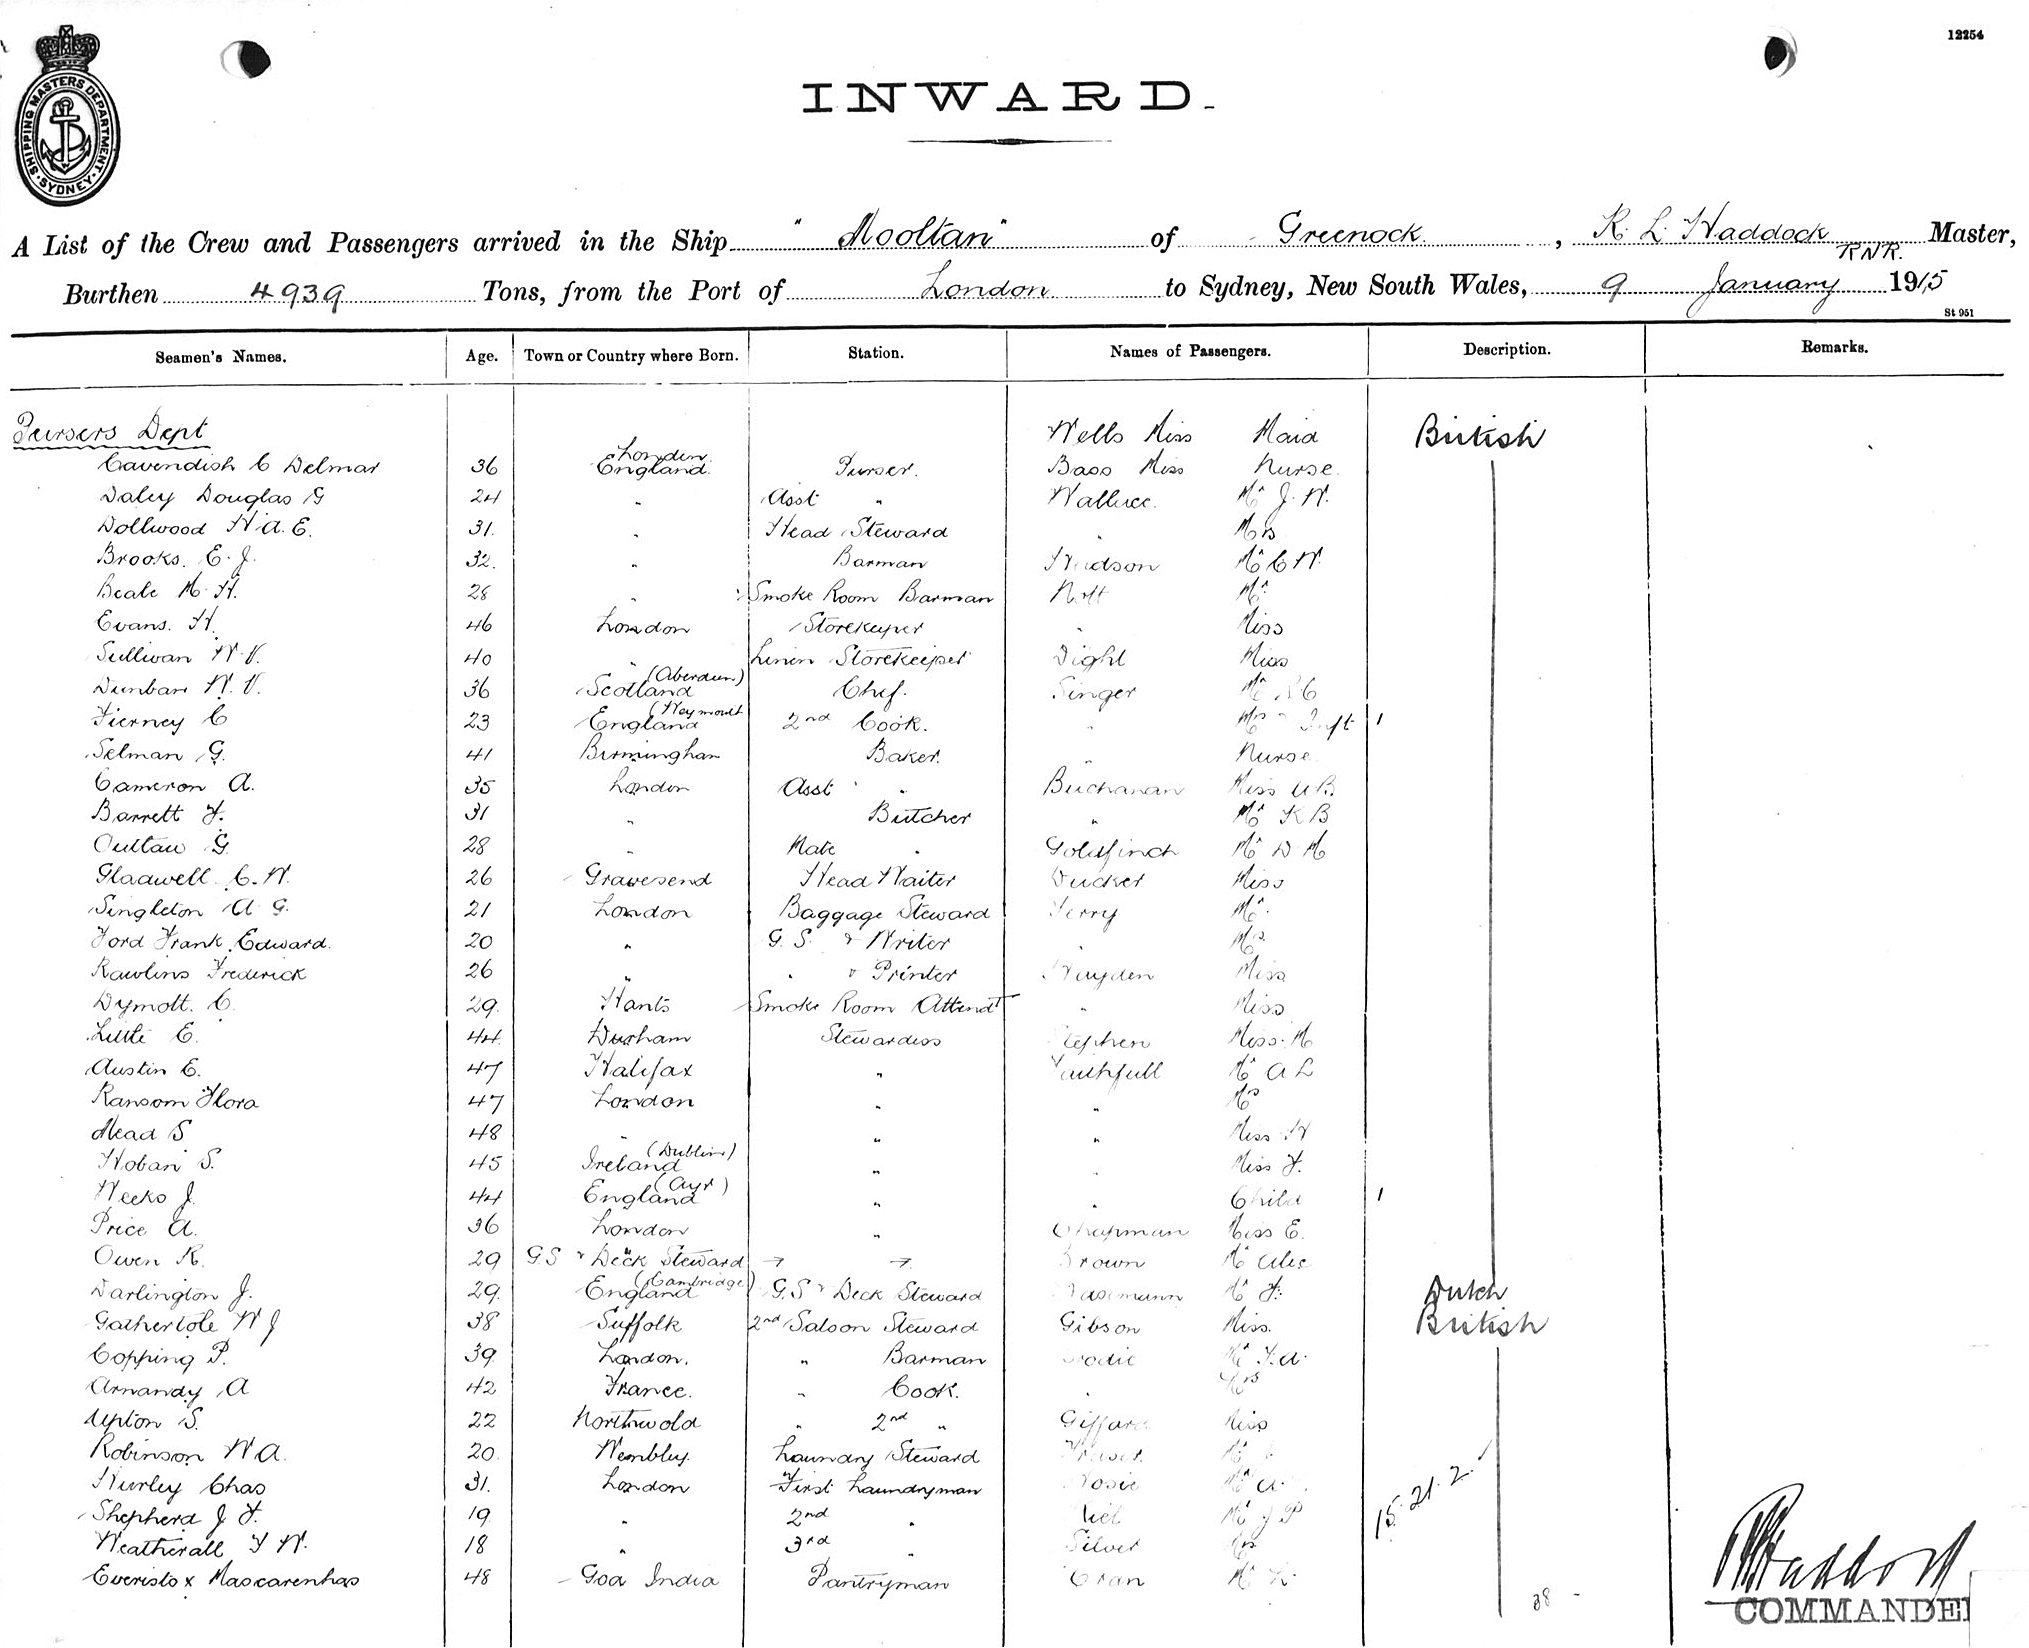 12254
SHIPPING MASTERS DEPARTMENT. SYDNEY
INWARD.
A List of the Crew and Passengers arrived in the Ship "Mooltan" of Greenock, R. L. Haddock RNR. Master,
Burthen 4939 Tons, from the Port of London to Sydney, New South Wales, 9 January 1915
St 951
Seamen's Names. Age. Town or Country where Born. Station. Names of Passengers. Description. Remarks.
Pursers Dept Wells Miss Maid British
Cavendish C Delmar 36 London England. Purser. Bass Miss Nurse.
Daley Douglas G 24 " Asst " Wallace. Mr J. W.
Dollwood H. A. E. 31. " Head Steward " Mrs
Brooks. E. J. 32. " Barman Hudson Mr C W.
Beale M. H. 28 " Smoke Room Barman Nott Mr
Evans. H. 46 London Storekeeper " Miss
Sullivan W. V. 40 " Linen Storekeeper Dight Miss
Dunbar W. V. 36 Scotland (Aberdeen) Chef. Singer Mr
Tierney C 23 England (Weymouth 2nd Cook. " Mrs " Inft 1
Selman G. 41 Birmingham Baker. " Nurse
Cameron A. 35 London Asst " Buchanan Miss
Barrett F. 31 " Butcher " Mr K B
Outlaw G. 28 " Mate " Goldfinch Mr D M
Gladwell C. W. 26 Gravesend Head Waiter Tucker Miss
Singleton A G. 21 London Baggage Steward Terry Mr.
Ford Frank Edward. 20 " G. S. & Writer " Mrs
Rawlins Frederick 26 " " & Printer Hayden Miss
Dymott. C. 29. Hants Smoke Room Attendt " Miss
Little E. 44 Durham Stewardess Stephen Miss. M
Austin E. 47 Halifax " Faithfull Mr A L
Ransom Flora 47 London " " Mrs
Mead S 48 " " " Miss H
Hoban S. 45 Ireland (Dublin) " " Miss F.
Weeks J. 44 England (Ayr) " " Child 1
Price A. 36 London " Chapman Miss E.
Owen R. 29 G S & Deck Steward Brown Mr Alec
Darlington J. 29. England (Cambridge) G. S & Deck Steward Mr F. Dutch
Gathercole W J 38 Suffolk 2nd Saloon Steward Gibson Miss. British
Copping P. 39 London. " Barman Mr F. A.
Arnandy A 42 France. " Cook. " Mrs
Upton S. 22 Northwold " 2nd " Giffard Miss
Robinson W A. 20. Wembley. Laundry Steward Fraser. Mr
Hurley Chas 31. London First Laundryman Mr A.
Shepherd J F. 19 " 2nd " Mr J P
Weatherall F W. 18 " 3rd " Silver Mrs
Everisto x Mascarenhas 48 Goa India Pantryman Cran Mr L.
15. 21. 2.
38 -
R L Haddock
COMMANDER